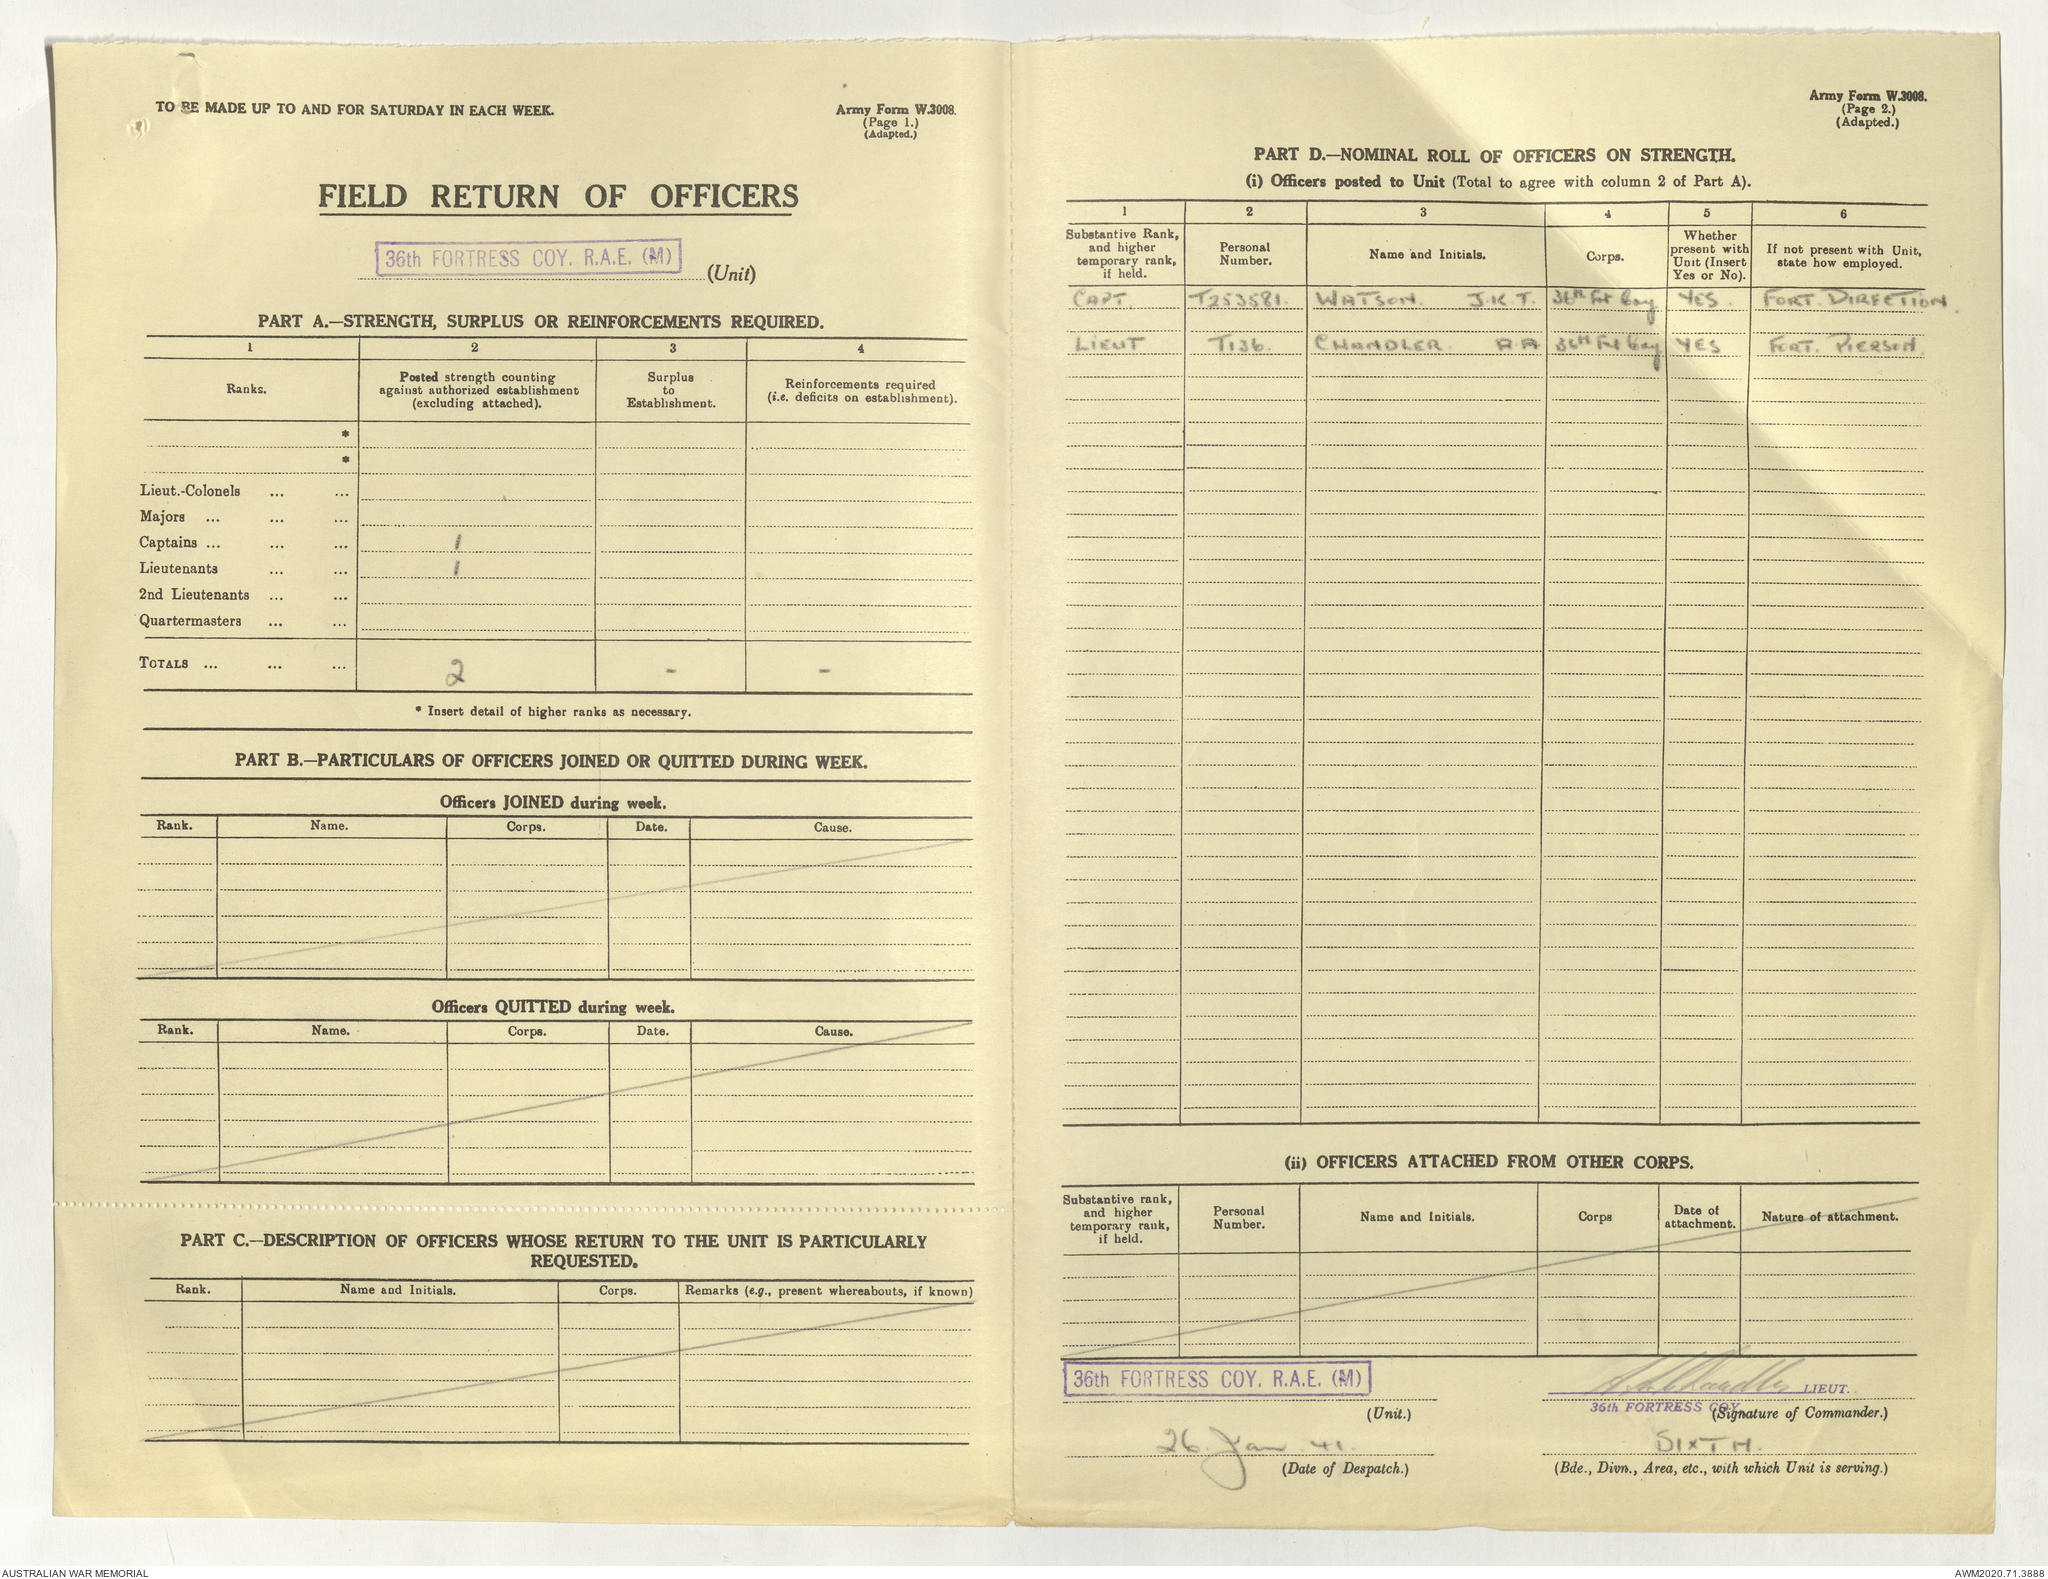 TO BE MADE UP TO AND FOR SATURDAY IN EACH WEEK.
Army Form W.3008.
(Page 1.)
(Adapted.)
FIELD RETURN OF OFFICERS
36th FORTRESS COY. R.A.E. (M)
(Unit)
PART A.—STRENGTH, SURPLUS OR REINFORCEMENTS REQUIRED.
1 2 3 4
Ranks.
Posted strength counting
against authorized establishment
(excluding attached).
Surplus
to
Establishment.
Reinforcements required
(i.e. deficits on establishment).
*
*
Lieut.-Colonels ... ...
Majors ... ... ...
Captains ... ... ... 1
Lieutenants ... ... 1
2nd Lieutenants ... ...
Quartermasters ... ...
TOTALS ... ... ... 2 - -
* Insert detail of higher ranks as necessary.
PART B.—PARTICULARS OF OFFICERS JOINED OR QUITTED DURING WEEK.
Officers JOINED during week.
Rank. Name. Corps. Date. Cause.
Officers QUITTED during week.
Rank. Name. Corps. Date. Cause.
PART C.—DESCRIPTION OF OFFICERS WHOSE RETURN TO THE UNIT IS PARTICULARLY
REQUESTED.
Rank. Name and Initials. Corps. Remarks (e.g., present whereabouts, if known)
Army Form W.3008.
(Page 2.)
(Adapted.)
PART D.—NOMINAL ROLL OF OFFICERS ON STRENGTH.
(i) Officers posted to Unit (Total to agree with column 2 of Part A).
1 2 3 4 5 6
Substantive Rank,
and higher
temporary rank,
if held.
Personal
Number.
Name and Initials.
Corps.
Whether
present with
Unit (Insert
Yes or No).
If not present with Unit,
state how employed.
CAPT. T253581. WATSON. J.K.T. 36th Fort Coy YES. FORT. DIRECTION.
LIEUT T136. CHANDLER. A.A 36th Fort Coy YES FORT. PIERSON.
(ii) OFFICERS ATTACHED FROM OTHER CORPS.
Substantive rank,
and higher
temporary rank,
if held.
Personal
Number.
Name and Initials.
Corps
Date of
attachment.
Nature of attachment.
36th FORTRESS COY. R.A.E. (M)
(Unit.)
A A Chandler LIEUT.
36th FORTRESS COY.
(Signature of Commander.)
26. Jan 41.
(Date of Despatch.)
SIXTH.
(Bde., Divn., Area, etc., with which Unit is serving.)
AUSTRALIAN WAR MEMORIAL
AWM2020.71.3888